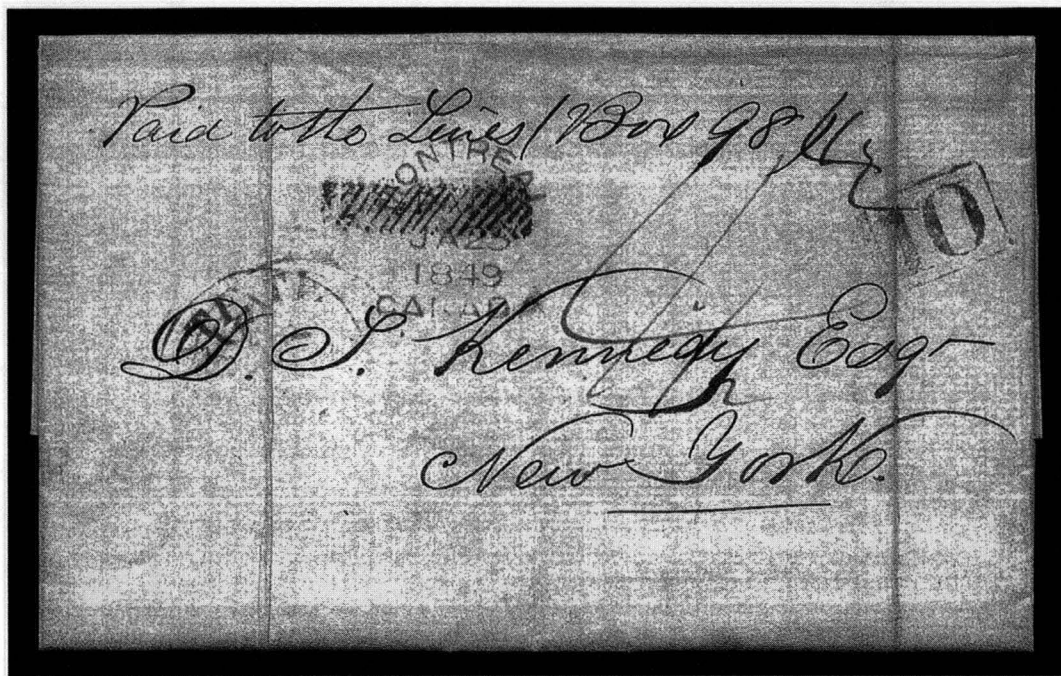 Paid to the Lines / Box 98
MONTREAL
JA 25
1849
CANADA
10
D. S. Kennedy Esqr
New York.